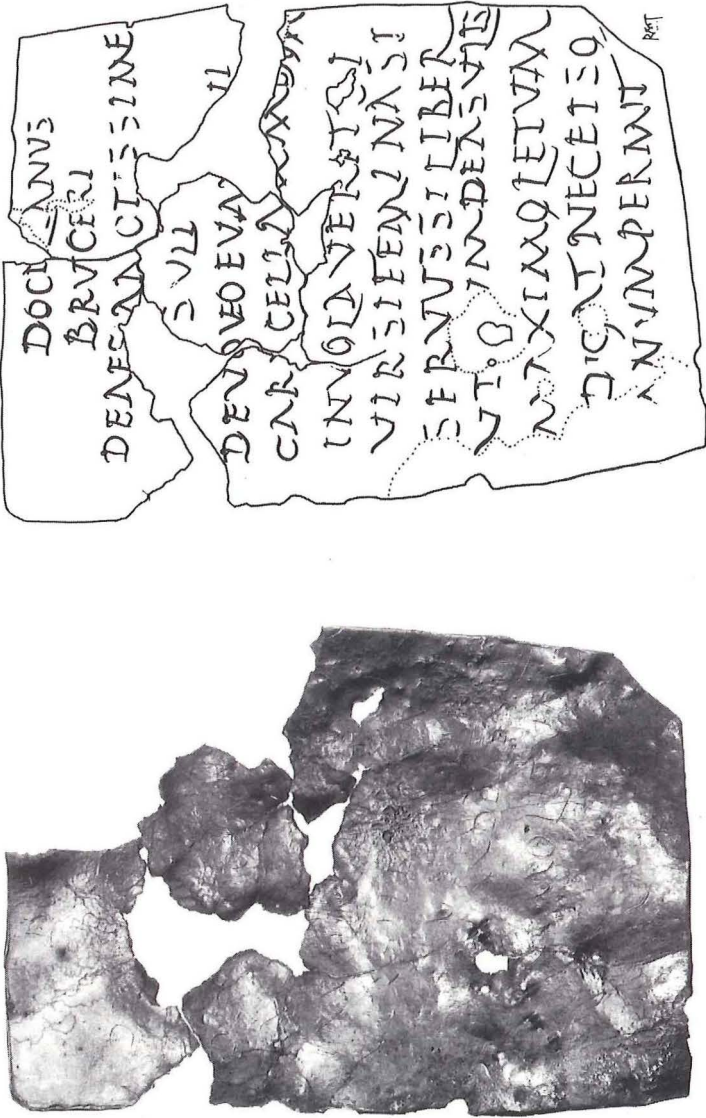 DOCI ANVS
BRVCERI
DEAESANCTISSIME
SVLI
DEVOVEOEVM
CAR CELLAM
INVOLAVERITSI
VIRSIFEMINASI
SERVVSSILIBER
VT VMDEASVLIS
MAXIMOLETVM
DIGATNECEISO
MNVMPERMIT